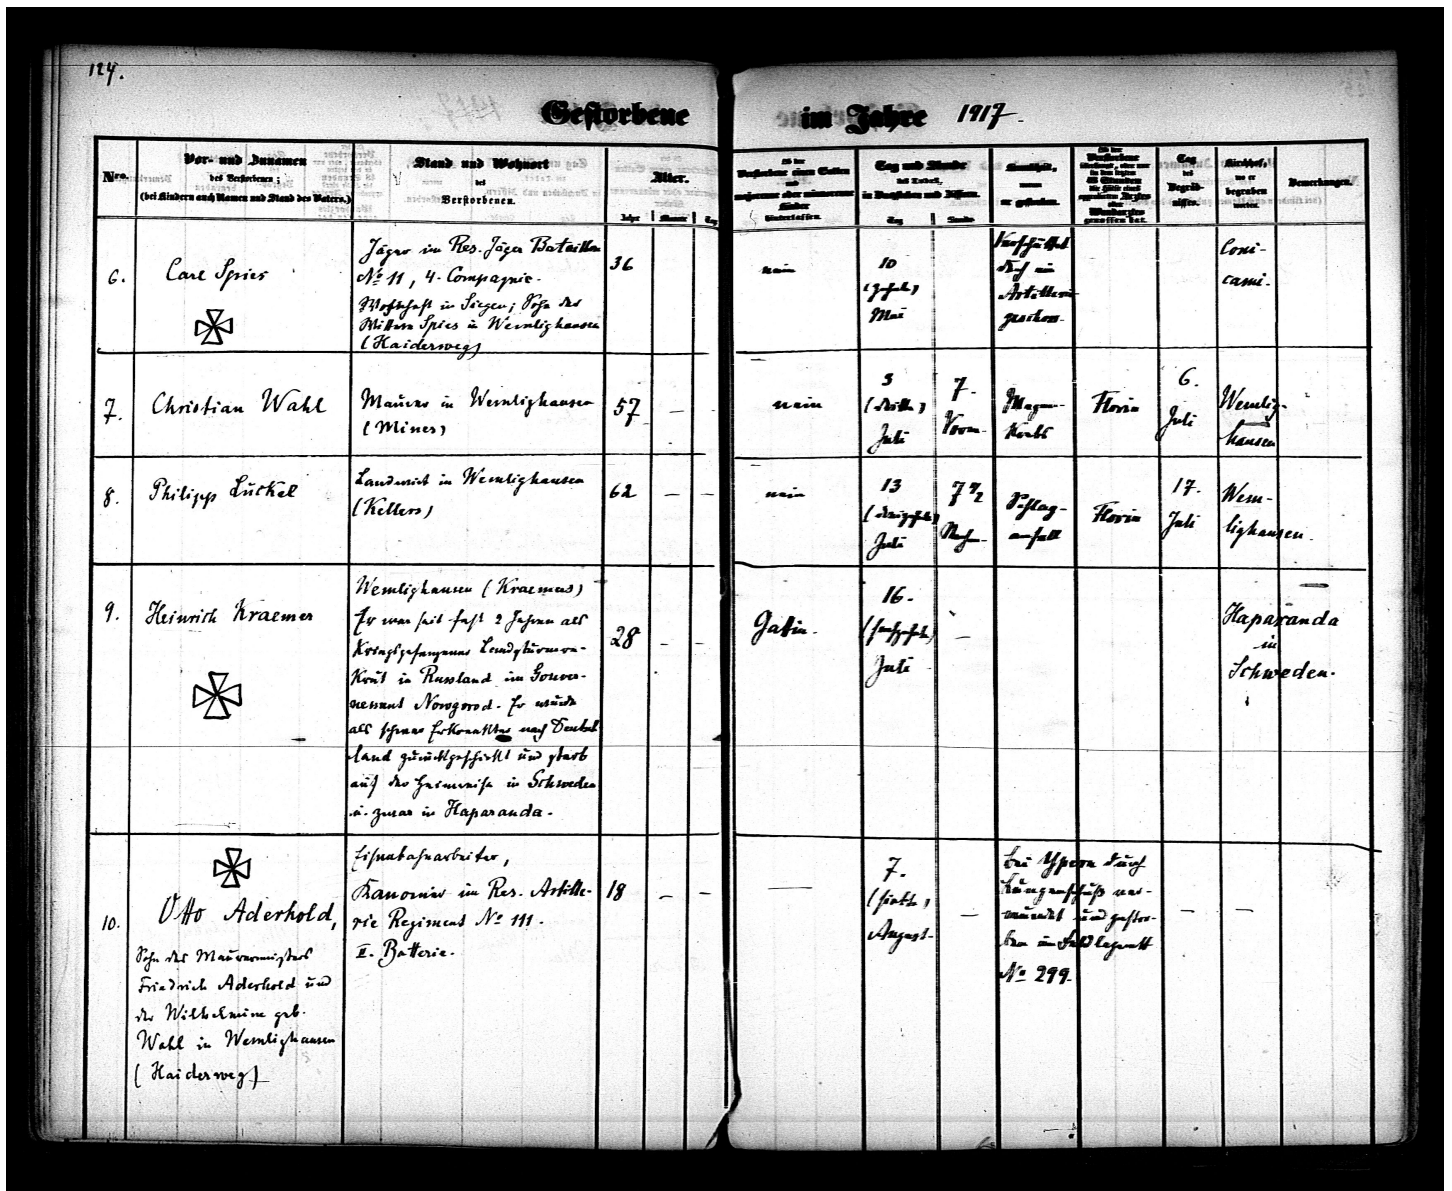 124.
Gestorbene im Jahre 1917.
Nro.
Vor- und Zunamen
des Verstorbenen;
(bei Kindern auch Namen und Stand des Vaters.)
Stand und Wohnort
des
Verstorbenen.
Alter.
Jahr Monat Tag
Ob der
Verstorbene einen Gatten
und
majorenne oder minorenne
Kinder
hinterlassen.
Tag und Stunde
des Todes,
in Buchstaben und Ziffern.
Tag Stunde
Krankheit,
woran
er gestorben.
Ob der
Verstorbene
Tag
des
Begräb-
nisses.
Kirchhof,
wo er
begraben
worden.
Bemerkungen.
6.
Carl Spies
Jäger im Res. Jäger Bataillon
No 11, 4. Compagnie.
Wohnhaft in Siegen; Sohn der
Witwe Spies in Wemlighausen
(Haiderweg)
36
nein
10
(zehnte)
Mai
Verschüttet
durch ein
Artillerie
geschoss.
7.
Christian Wahl
Maurer in Wemlighausen
(Mines)
57 –
nein
3
(dritte)
Juli
7.
Vorm.
Magen-
Krebs
Florin
6.
Juli
Wemlig-
hausen
8.
Philipp Lückel
Landwirt in Wemlighausen
(Kellers)
62 – –
nein
13
(dreizehnte)
Juli
7 1/2
Nachm.
Schlag-
anfall
Florin
17.
Juli
Wem-
lighausen.
9.
Heinrich Kraemer
Wemlighausen (Kraemers)
Er war seit fast 2 Jahren als
Kriegsgefangener Landsturmre-
Krut in Russland im Gouver-
nement Nowgorod. Er wurde
als schwer Erkrankter nach Deutsch
land zurückgeschickt und starb
auf der Heimreise in Schweden
u. zwar in Haparanda.
28 – –
Gattin.
16.
(sechzehnte)
Juli
–
Haparanda
in
Schweden.
10.
Otto Aderhold,
Sohn des Maurermeisters
Friedrich Aderhold und
der Wilhelmine geb.
Wahl in Wemlighausen
(Haiderweg)
Eisenbahnarbeiter,
Kanonier im Res. Artille-
rie Regiment No 111.
II. Batterie.
18 – –
—
7.
(siebte)
August.
–
bei Ypern durch
Lungenschuß ver-
wundet und gestor-
ben im Feldlazarett
No 299.
– –